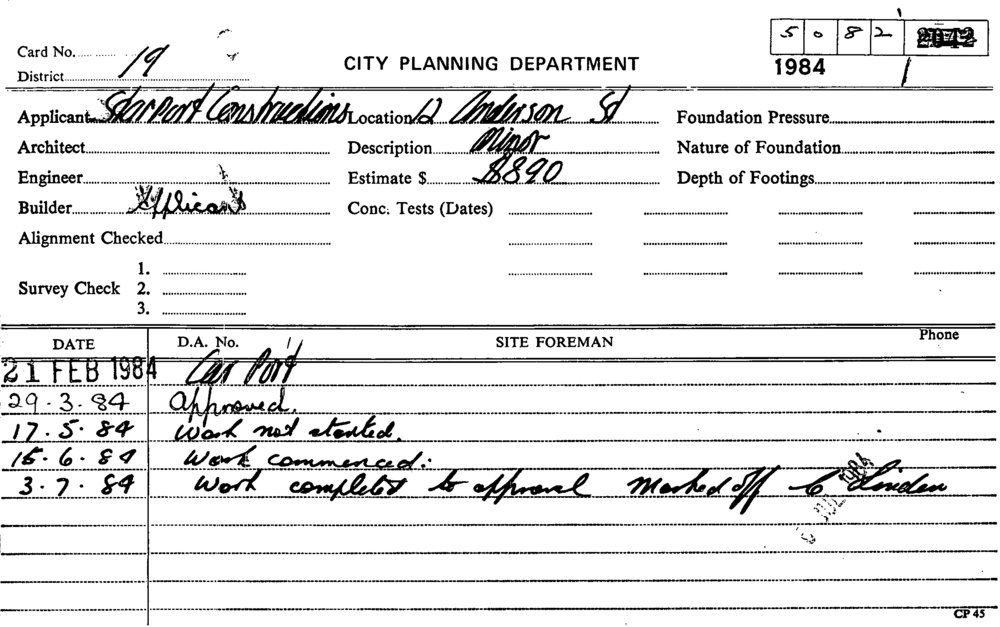 5082
Card No. 19
District
CITY PLANNING DEPARTMENT
1984 1
Applicant Starport Constructions Location 12 Anderson St Foundation Pressure
Architect Description Minor Nature of Foundation
Engineer Estimate $ $890 Depth of Footings
Builder Applicant Conc. Tests (Dates)
Alignment Checked
1.
Survey Check 2.
3.
DATE D.A. No. SITE FOREMAN Phone
21 FEB 1984 Car Port
29.3.84 Approved.
17.5.84 Work not started.
15.6.84 Work commenced:
3.7.84 Work completed to approval Marked off C Linden
CP 45